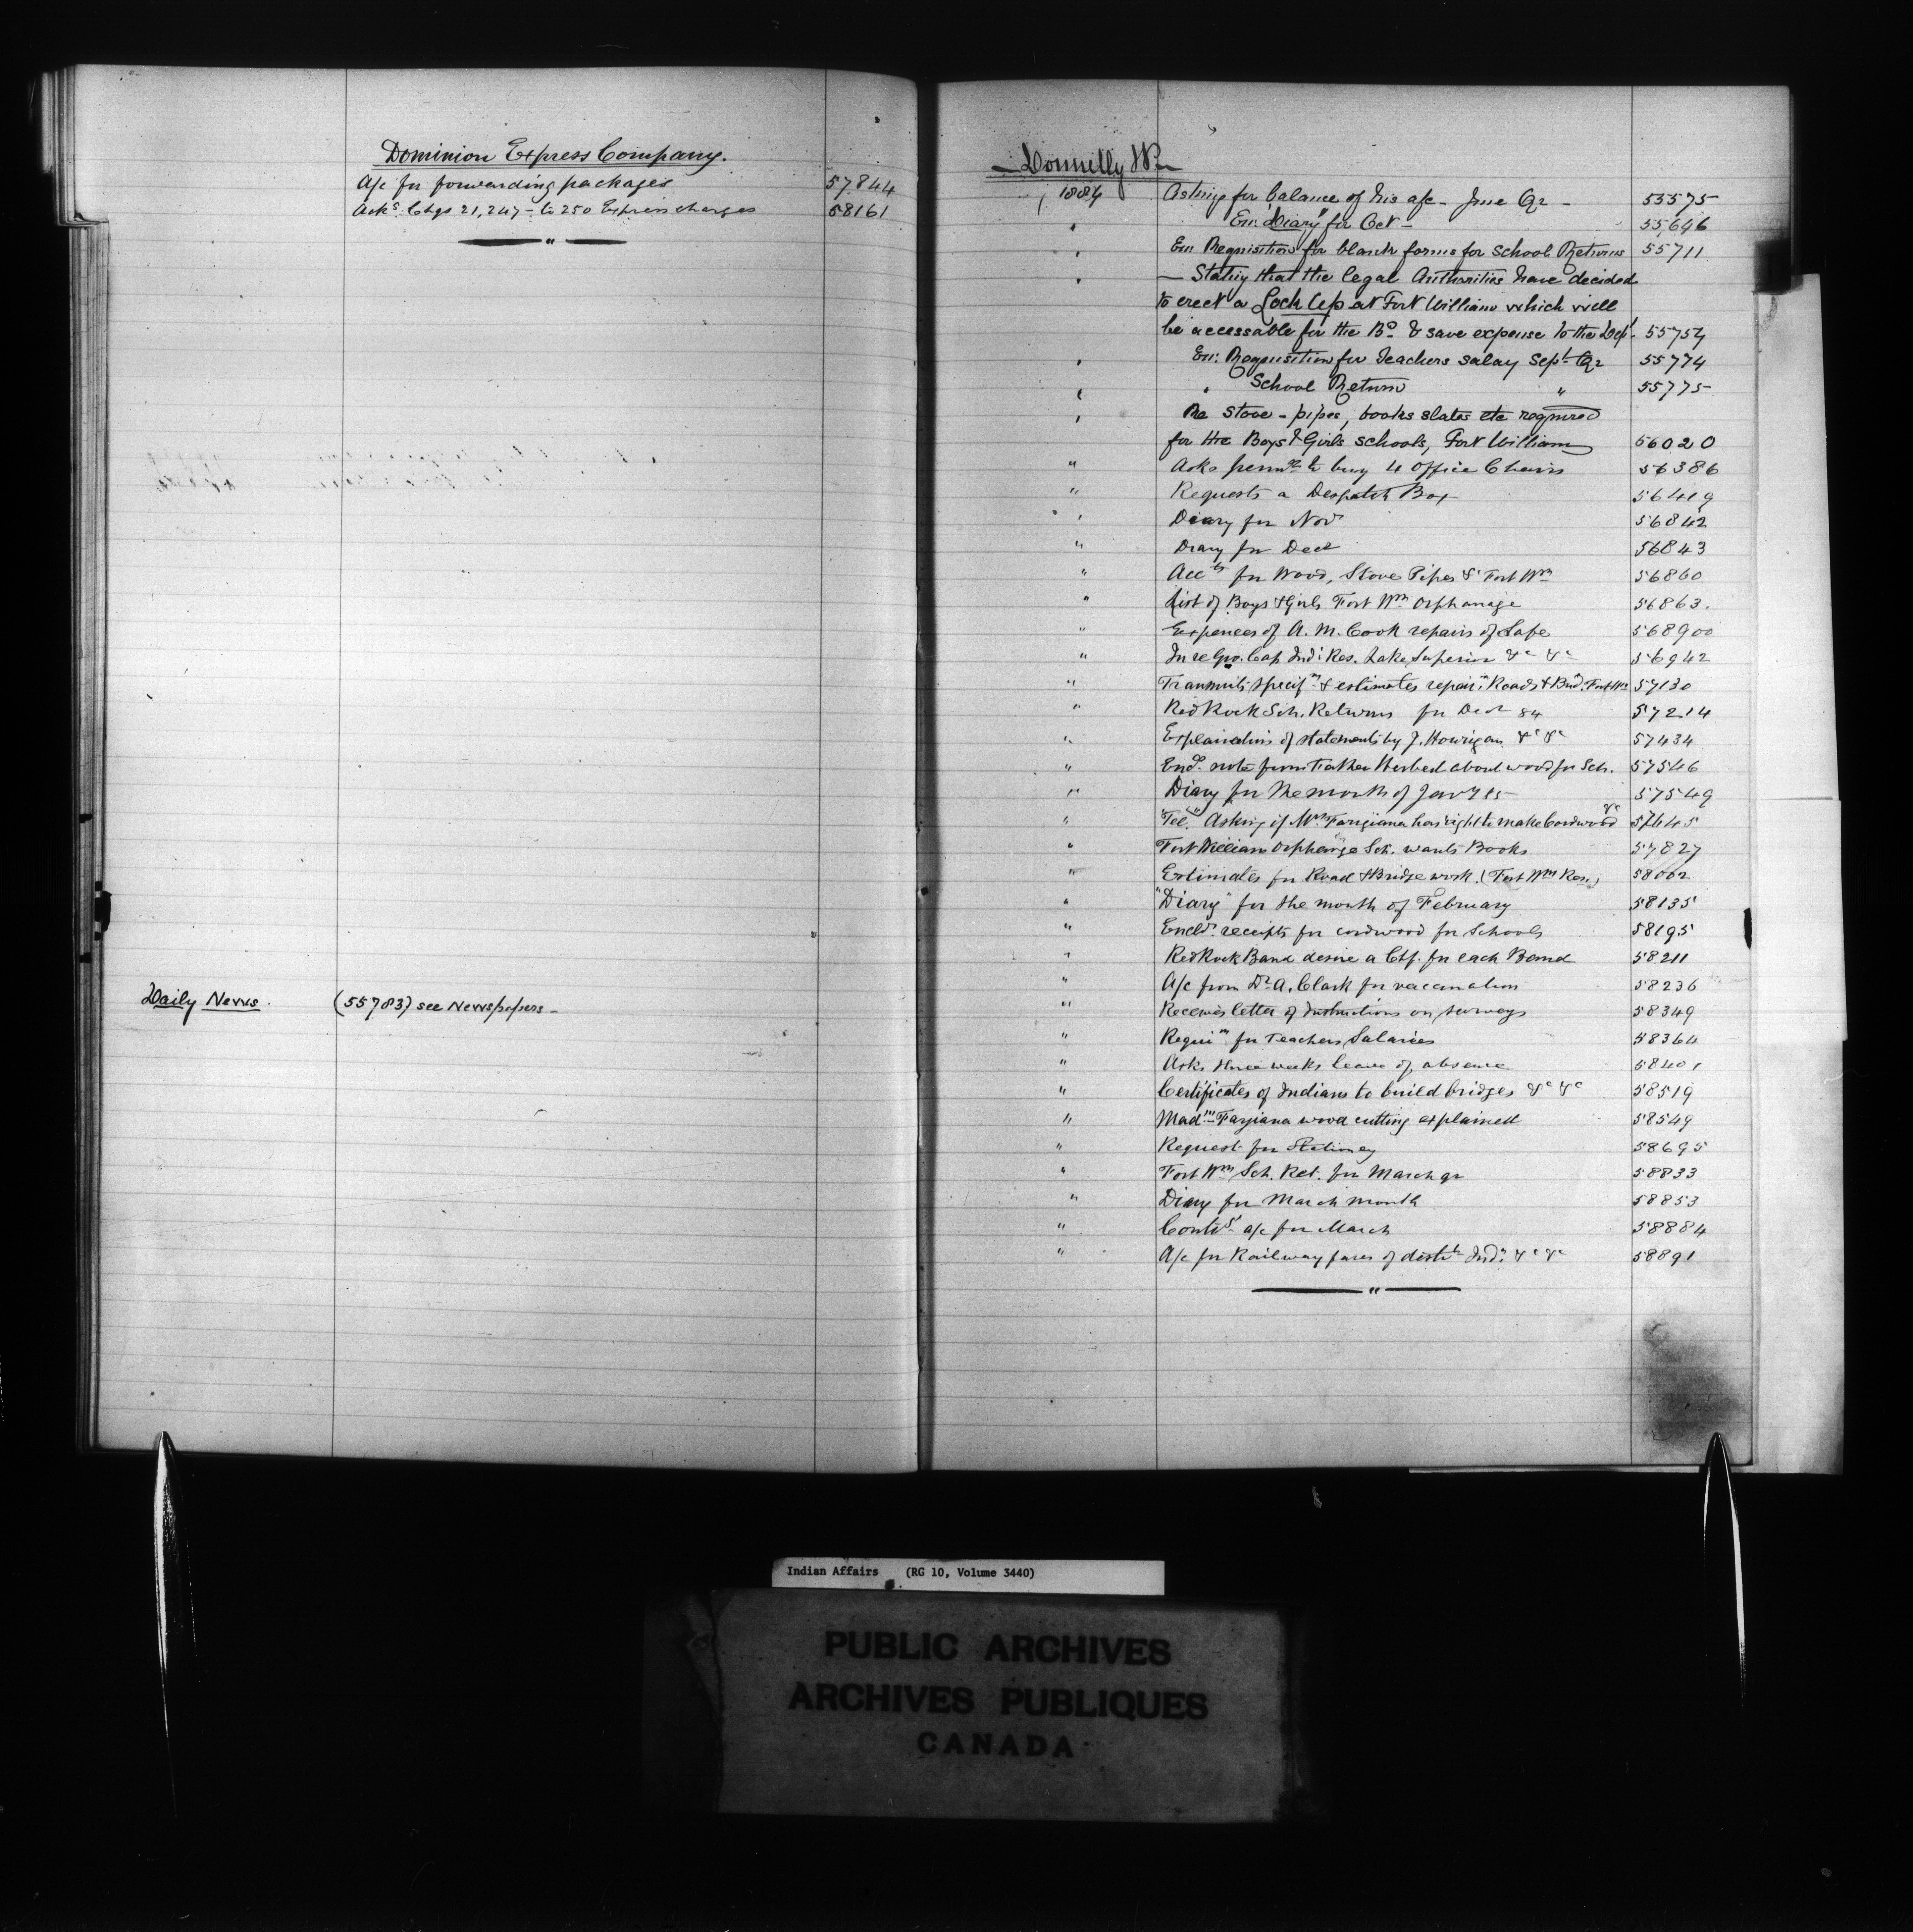 Dominion Express Company.
A/c for forwarding packages 57844
Acks Chqs 21,247 - to 250 Express charges 58161
"
Daily News. (55783) see Newspapers -
Donnelly JP
1884 Asking for balance of his a/c - June Qr - 53575
" En: "Diary" for Oct - 55,646
" En: Requisition for blank forms for School Returns 55711
" - Stating that the legal Authorities have decided
to erect a Lock Up at Fort William which will
be accessable for the Bd. & save expense to the Dept. 55754
" En: Requisition for Teachers salary Sept Qr 55774
" " School Return " 55775
" Re Stove - pipes, books slates etc required
for the Boys & Girls schools, Fort William 56020
" Asks permn to buy 4 Office Chairs 56386
" Requests a Despatch Box 56419
" Diary for Nov 56842
" Diary for Decr 56843
" Accts for Wood, Stove Pipes &c Fort Wm 56860
" List of Boys & Girls Fort Wm Orphanage 56863.
" Expences of A. M. Cook repairs of Safe 568900
" In re Gro. Cap Ind: Res. Lake Superior &c &c 56942
" Transmits specifn & estimates repairs Roads & Brid. Fort Wm 57130
" Red Rock Sch. Returns for Decr 84 57214
" Explanations of statements by J. Hourigan &c &c 57434
" Encl. note from Father Herbert about wood for Sch. 57546
" Diary for the month of Jany 85 57549
" "Tel." Asking if Mrs Fargiana has right to make Cordwood &c 57645
" Fort William Orphange Sch. wants Books 57827
" Estimates for Road & Bridge work. (Fort Wm Res.) 58002
" "Diary" for the month of February 58135
" Encld. receipts for cordwood for Schools 58195
" Red Rock Band desire a Chf. for each Band 58211
" A/c from Dr A. Clark for vaccination 58236
" Receives letter of Instructions on surveys 58349
" Requin for Teachers Salaries 58364
" Asks three weeks leave of absence 58401
" Certificates of Indians to build bridges &c &c 58519
" Madm Fargiana wood cutting explained 58549
" Request for Stationey 58695
" Fort Wm Sch. Ret. for March qr 58833
" Diary for March month 58853
" Contg a/c for March 58884
" A/c for Railway fares of destit Ind: &c &c 58891
"
Indian Affairs (RG 10, Volume 3440)
PUBLIC ARCHIVES
ARCHIVES PUBLIQUES
CANADA